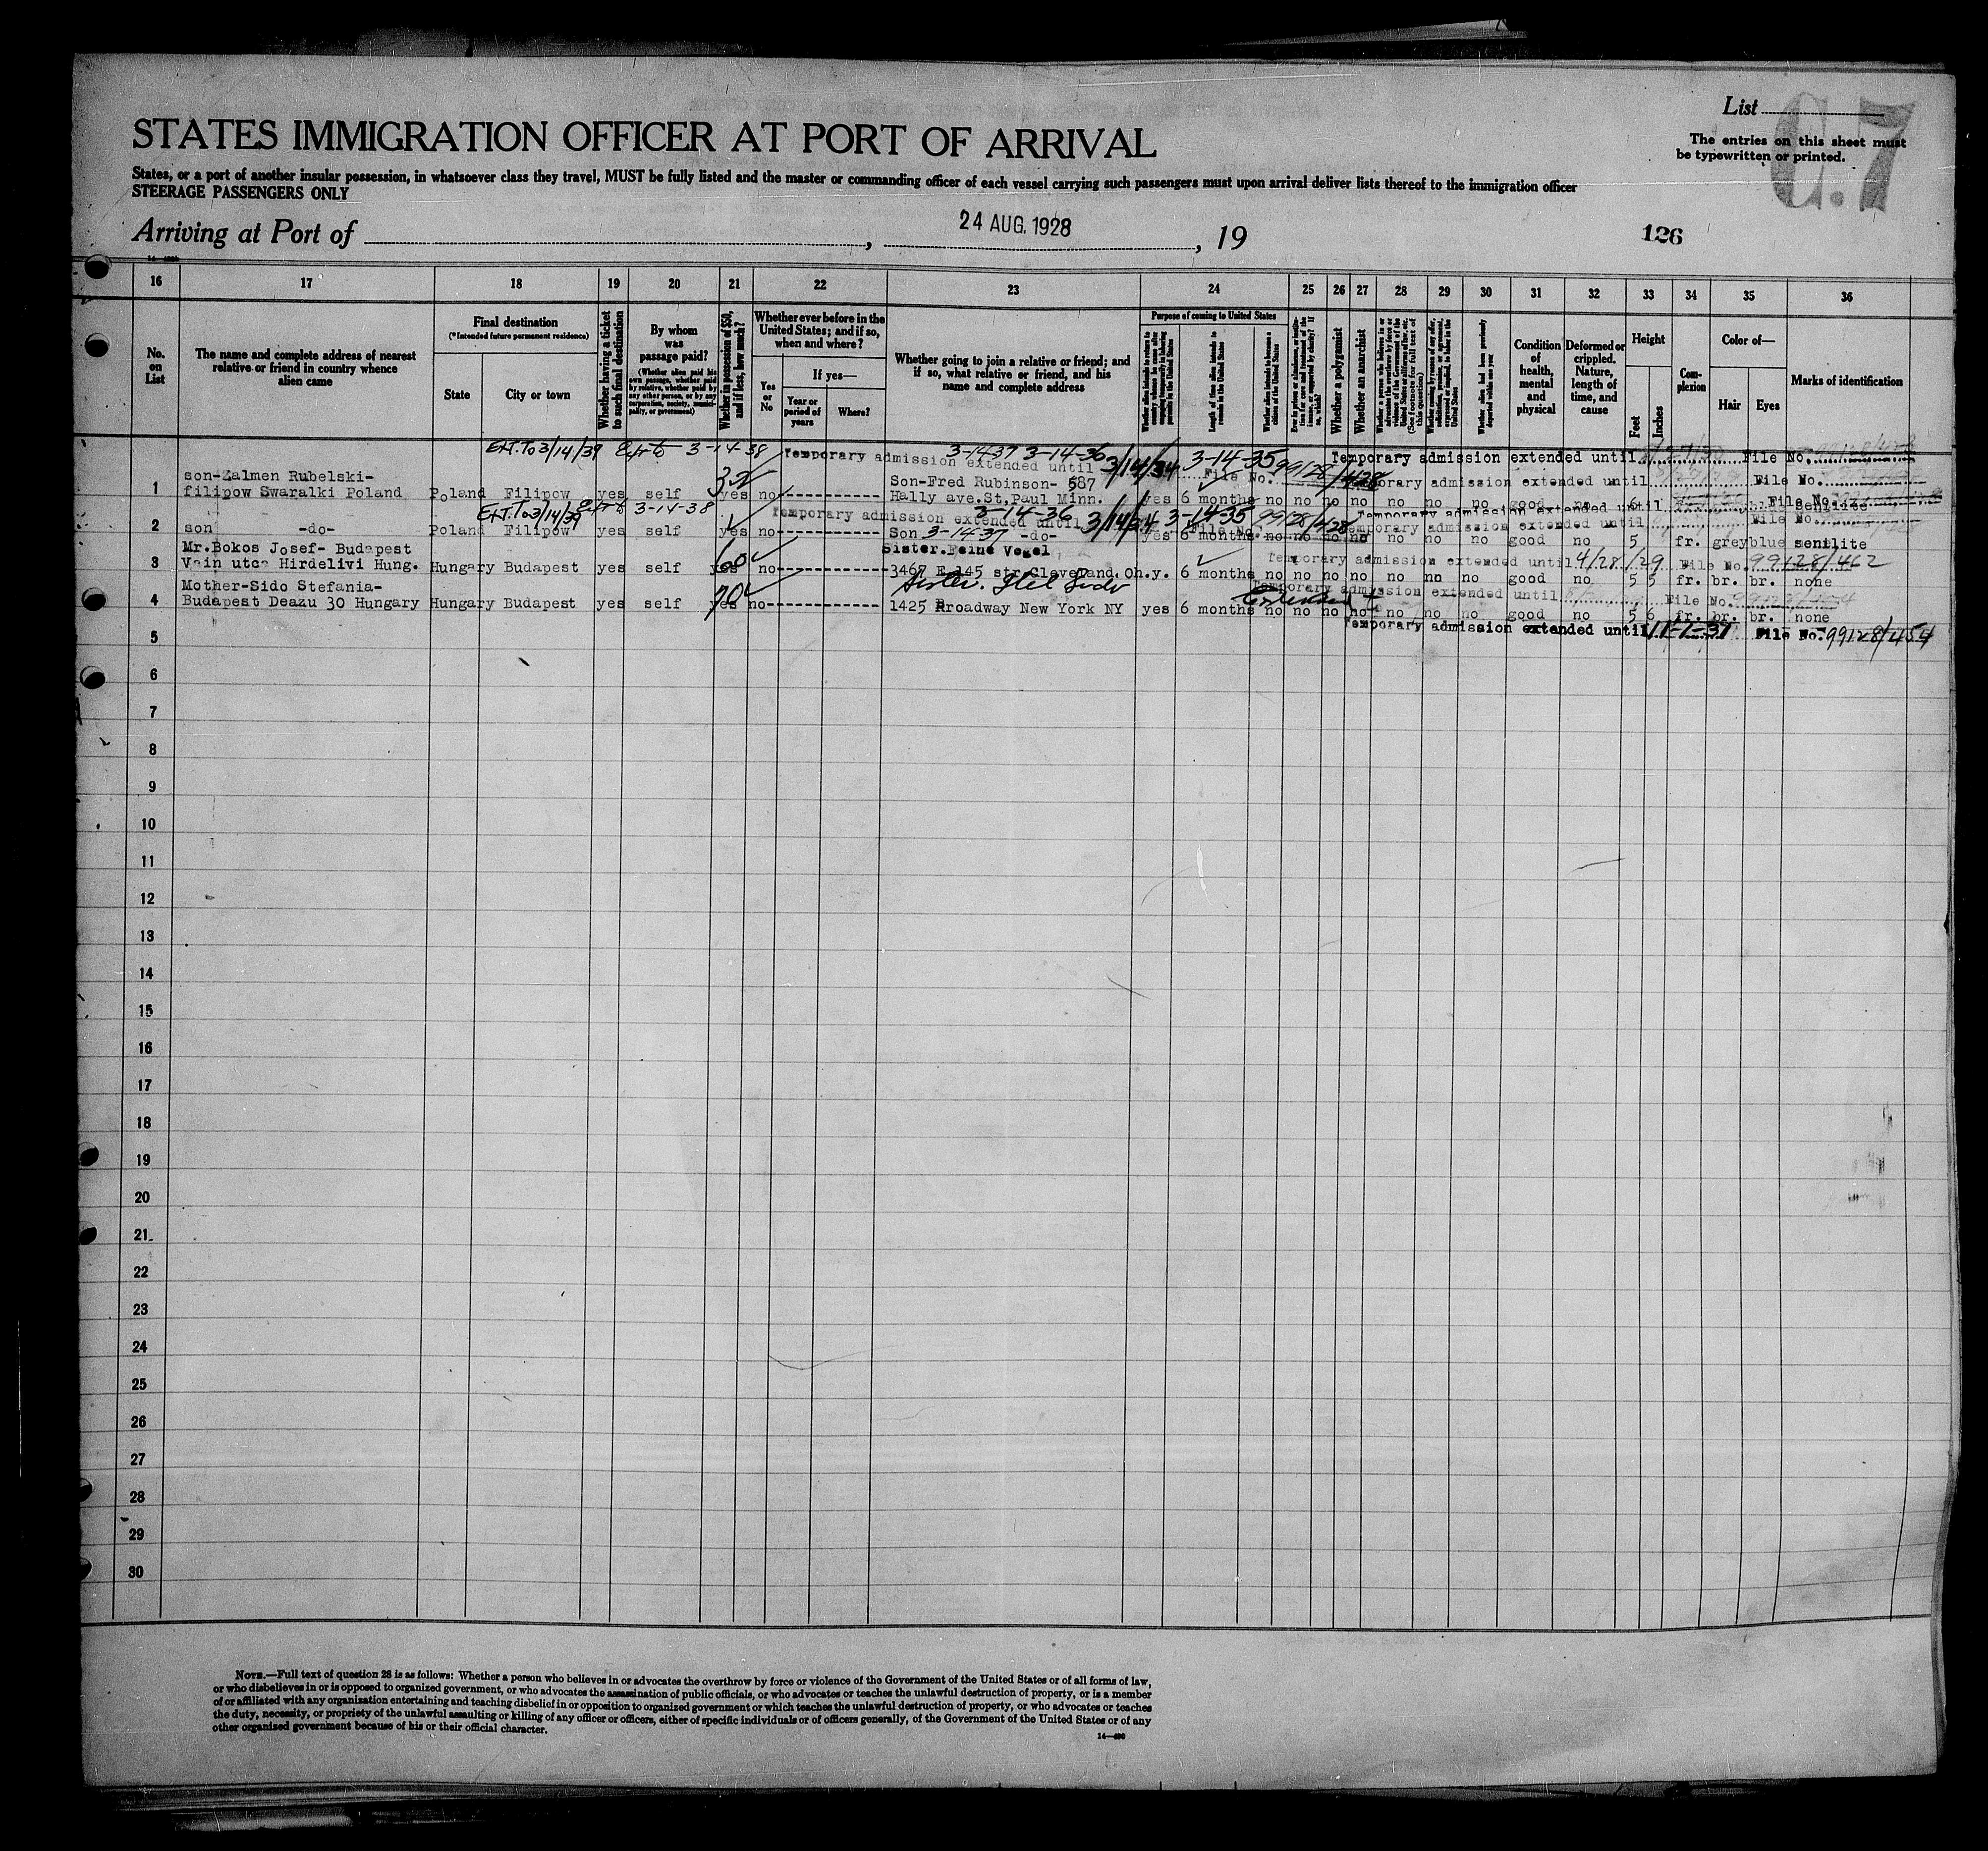 List
C.7
The entries on this sheet must
be typewritten or printed.
STATES IMMIGRATION OFFICER AT PORT OF ARRIVAL
States, or a port of another insular possession, in whatsoever class they travel, MUST be fully listed and the master or commanding officer of each vessel carrying such passengers must upon arrival deliver lists thereof to the immigration officer
STEERAGE PASSENGERS ONLY
Arriving at Port of , 24 AUG. 1928 , 19
126
16 17 18 19 20 21 22 23 24 25 26 27 28 29 30 31 32 33 34 35 36
No. on List
The name and complete address of nearest relative or friend in country whence alien came
Final destination
(*Intended future permanent residence)
State
City or town
Whether having a ticket to such final destination
By whom was passage paid?
(Whether alien paid his own passage, whether paid by relative, whether paid by any other person, or by any corporation, society, municipality, or government)
Whether in possession of $50, and if less, how much?
Whether ever before in the United States; and if so, when and where?
Yes or No
If yes—
Year or period of years
Where?
Whether going to join a relative or friend; and if so, what relative or friend, and his name and complete address
Purpose of coming to United States
Length of time alien intends to remain in the United States
Whether alien intends to become a citizen of the United States
Whether a polygamist
Whether an anarchist
(See footnote for full text of this question)
Whether alien had been previously deported within one year
Condition of health, mental and physical
Deformed or crippled. Nature, length of time, and cause
Height
Feet
Inches
Complexion
Color of—
Hair
Eyes
Marks of identification
Ext. To 3/14/39 Ext to 3-14-38
3-14-37 3-14-36
Temporary admission extended until 3/14/34 3-14-35 File No. 99128/428
Temporary admission extended until File No.
Temporary admission extended until File No.
son-Zalmen Rubelski-
1 filipow Swaralki Poland Poland Filipow yes self yes no Son-Fred Rubinson- 587
Hally ave.St.Paul Minn. yes 6 months no no no no no no no good no
Ext. To 3/14/39 Ext to 3-14-38
3-14-36
Temporary admission extended until 3/14/34 3-14-35 File No. 99128/428
Temporary admission extended until File No.
Temporary admission extended until File No.
2 son -do- Poland Filipow yes self yes no Son 3-14-37 -do- yes 6 months no no no no no no no good no 5 fr. grey blue senilite
Mr.Bokos Josef- Budapest
Sister.Feine Vogel
Temporary admission extended until 4/28/29 File No. 99128/462
3 Vain utca Hirdelivi Hung. Hungary Budapest yes self yes 60 no 3467 E 145 str Cleveland Oh. y. 6 months no no no no no no no good no 5 5 fr. br. br. none
Mother-Sido Stefania-
Sister.
Temporary admission extended until File No.
4 Budapest Deazu 30 Hungary Hungary Budapest yes self yes 70 no 1425 Broadway New York NY yes 6 months no no no no no no no good no 5 6 fr. br. br. none
Temporary admission extended until 11-7-31 File No. 99128/454
5
6
7
8
9
10
11
12
13
14
15
16
17
18
19
20
21
22
23
24
25
26
27
28
29
30
NOTE.—Full text of question 28 is as follows: Whether a person who believes in or advocates the overthrow by force or violence of the Government of the United States or of all forms of law,
or who disbelieves in or is opposed to organized government, or who advocates the assassination of public officials, or who advocates or teaches the unlawful destruction of property, or is a member
of or affiliated with any organization entertaining and teaching disbelief in or opposition to organized government or which teaches the unlawful destruction of property, or who advocates or teaches
the duty, necessity, or propriety of the unlawful assaulting or killing of any officer or officers, either of specific individuals or of officers generally, of the Government of the United States or of any
other organized government because of his or their official character.
14—480